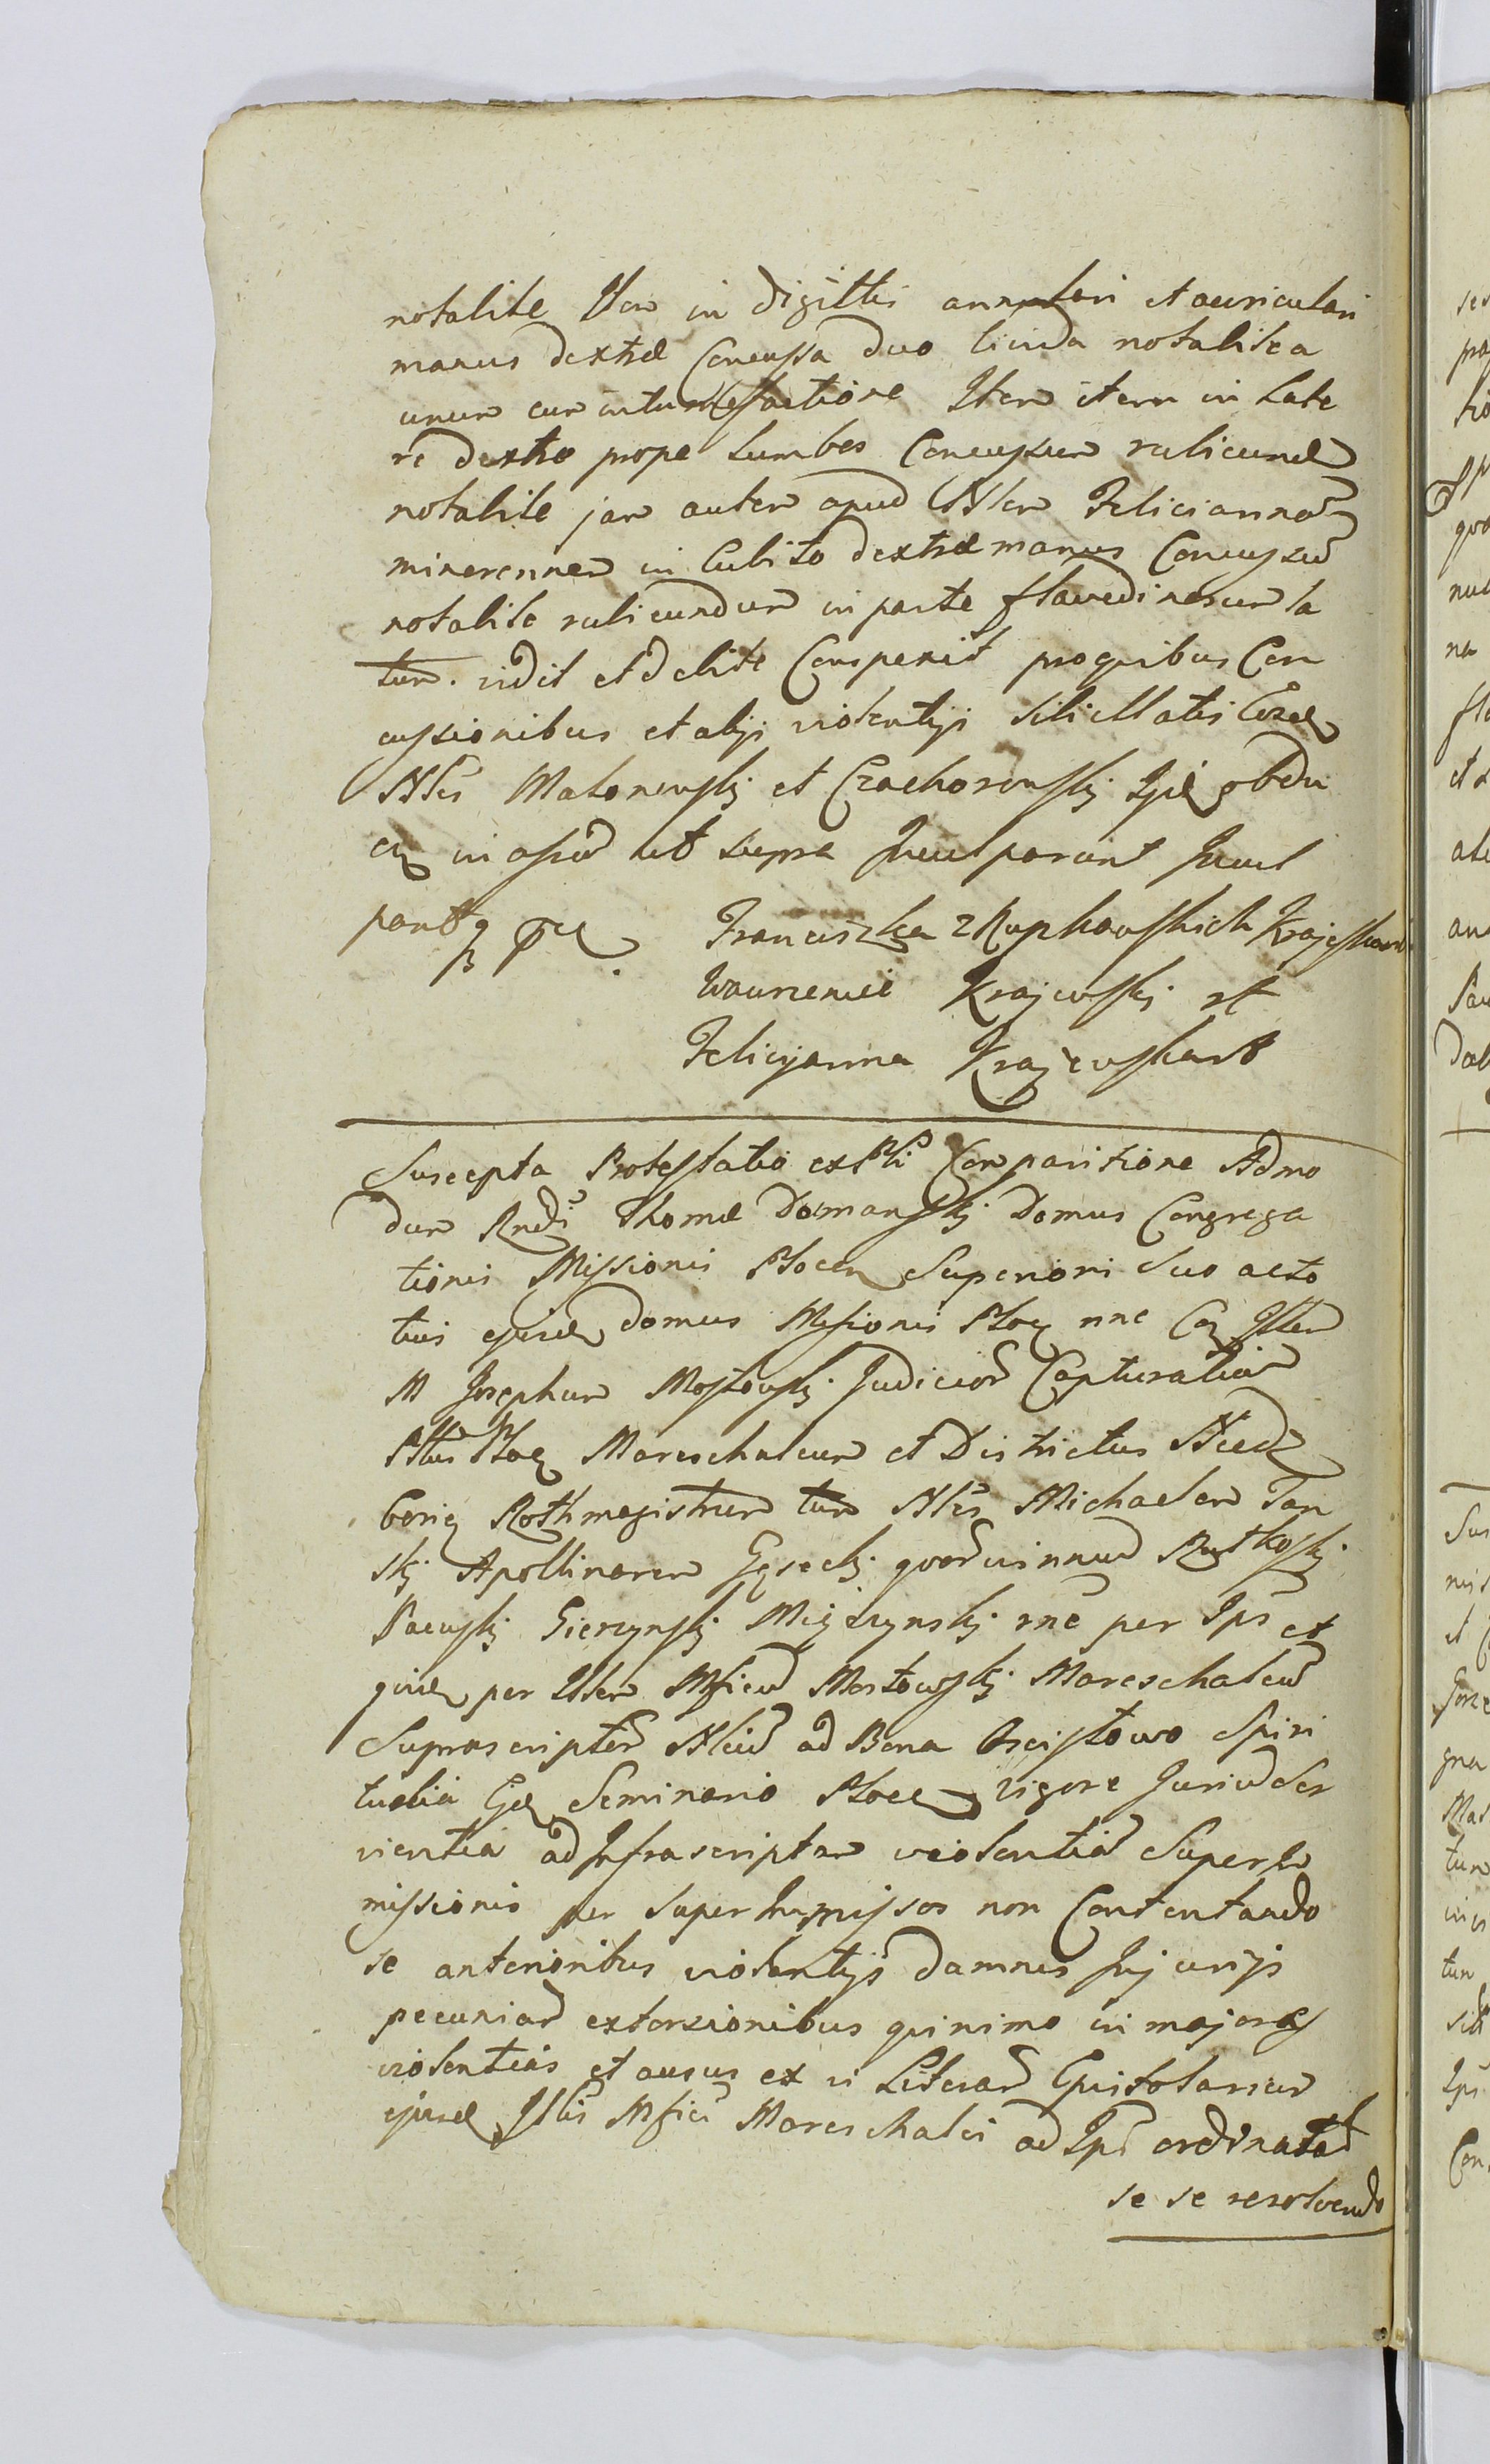 notabile Item in digittis annulari et auriculari
manus dextrae Concussa duo livida notabilea
unum cum intumessactione Item item in Late
re dextro prope Lumbos Concussum rubicund
notabile jam autem apud Nlem Feliciannam
minorennem in Cubito dextrae manus Concussu
notabile rubicundum in parte flavedine
tum. vidit et debite Conspexit pro quibus Con
cussionibus et alys violentys sibi illatis
Nles Makonewskj et Czachorowskj Ipse obdu
in assu ut supra Inculparunt Incul
pant
Franciszka z Rupkowskich Krajewska
Wawrzeniec Krajewskj et
Felicyanna Krajewska
Suscepta Protestatio ex Comparitione Admo
dum Rndi Thomae Domanskj Domus Congrega
tionis Missionis Plocen Superiori suo acto
tius ejusd domus Missionis Ploc nne Illem
M Josephum Mostowskj Judicior Capturaliu
Pltus Ploc Mareschalcum et Districtus Nied
borie Rothmagistrum tum Nles Michaelem Jan
skj Apollinarem quorvis Rutkoskj
Pacuskj Gierzynskj Mieszynskj nne per Ips et
quid per Illem Mficu Mostowskj Mareschalcu
Suprascriptor Nliu ad Bona Oscistowo Spiri
tualia Seminario Ploce vigore Juriu Ser
vientia ad Infrascriptam violentia Super In
missionis per super Inmissos non Contentando
se anterioribus violentys damnis Injurys
pecuniar extorsionibus quinimo in majores
violentias et ausus ex vi Literar Epistolarium
ejusd Illis Mfici Mareschalci ad Ips ordinatar
se se resolvendo